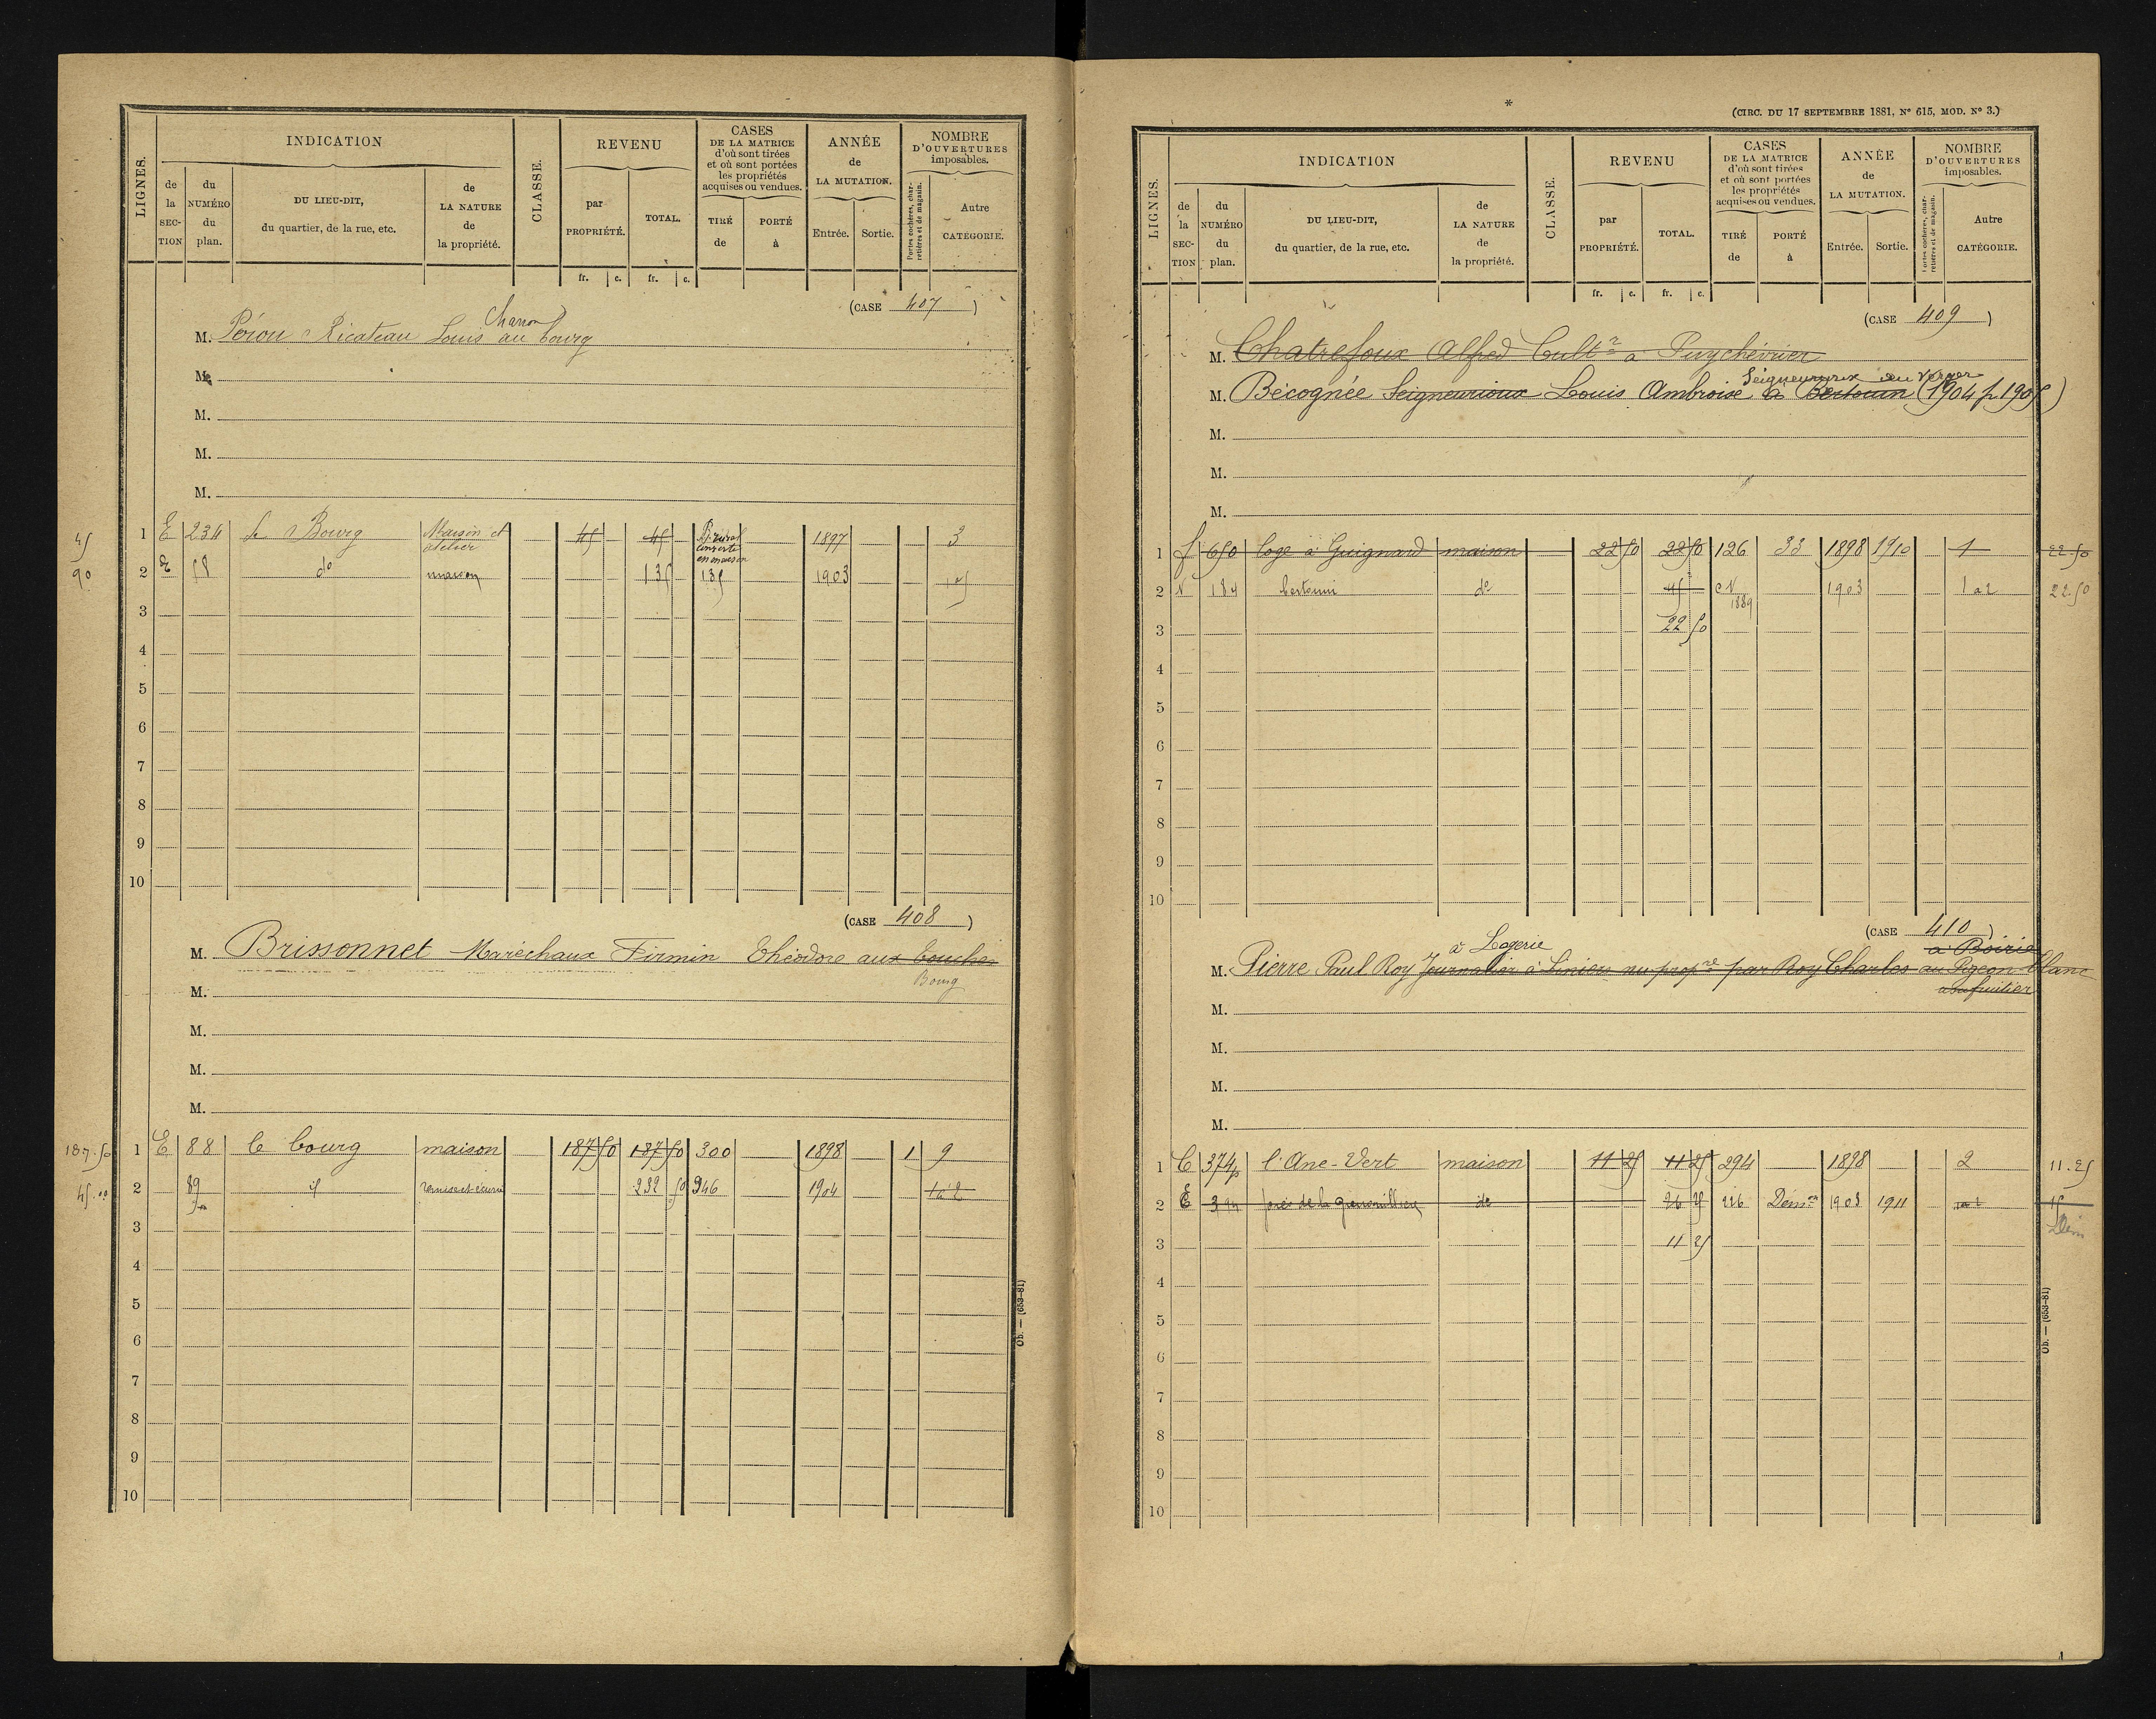 LIGNES.
INDICATION
de la SECTION
du NUMÉRO du plan.
DU LIEU-DIT, du quartier, de la rue, etc.
de LA NATURE de la propriété.
CLASSE.
REVENU
par PROPRIÉTÉ.
TOTAL.
CASES DE LA MATRICE d'où sont tirées et où sont portées les propriétés acquises ou vendues.
TIRÉ de
PORTÉ à
ANNÉE de LA MUTATION.
Entrée. Sortie.
NOMBRE D'OUVERTURES imposables.
Portes cochères, charretières et de magasin.
Autre CATÉGORIE.
fr. c. fr. c.
(CASE 407)
Charron
M. Péron Ricateau Louis au bourg
M.
M.
M.
M.
45 1 E 234 le Bourg Maison et atelier 45 45 1897 3
convertie en maison
90 2 E 58 do maison 135 135 1903
3
4
5
6
7
8
9
10
(CASE 408)
M. Brissonnet Maréchaux Firmin Théodore aux bouches
Bourg
M.
M.
M.
M.
187.50 1 E 88 le bourg maison 187 50 187 50 300 1898 1 9
45.00 2 89 id remise et écurie 232 50 346 1904 1 à 2
3
4
5
6
7
8
9
10
Ob. — (653-81)
*
(CIRC. DU 17 SEPTEMBRE 1881, N° 615, MOD. N° 3.)
LIGNES.
INDICATION
de la SECTION
du NUMÉRO du plan.
DU LIEU-DIT, du quartier, de la rue, etc.
de LA NATURE de la propriété.
CLASSE.
REVENU
par PROPRIÉTÉ.
TOTAL.
CASES DE LA MATRICE d'où sont tirées et où sont portées les propriétés acquises ou vendues.
TIRÉ de
PORTÉ à
ANNÉE de LA MUTATION.
Entrée. Sortie.
NOMBRE D'OUVERTURES imposables.
Portes cochères, charretières et de magasin.
Autre CATÉGORIE.
fr. c. fr. c.
(CASE 409)
M. Chatrefoux Alfred Cultr à Puychévrier
Seigneurioux au Verger
M. Bécognée Seigneurioux Louis Ambroise à Bertouin (1904 p 1905)
M.
M.
M.
1 f 650 loge à Guignard maison 22 50 22 50 126 33 1898 1910 1 22-50
2 N 184 bertouin do 45 CN 1889 1903 1 à 2 22.50
3 22 50
4
5
6
7
8
9
10
(CASE 410)
à Lagerie à Boirie
M. Pierre Paul Roy Journalier à Liniers nu propre par Roy Charles au Pigeon blanc
usufruitier
M.
M.
M.
M.
1 C 374p l'Ane-Vert maison 11 25 11 25 294 1898 2 11.25
2 E 394 près de la grenouillère do 26 25 226 Démon 1903 1911 1 à 2 15
Dém
3 11 25
4
5
6
7
8
9
10
Ob. — (653-81)